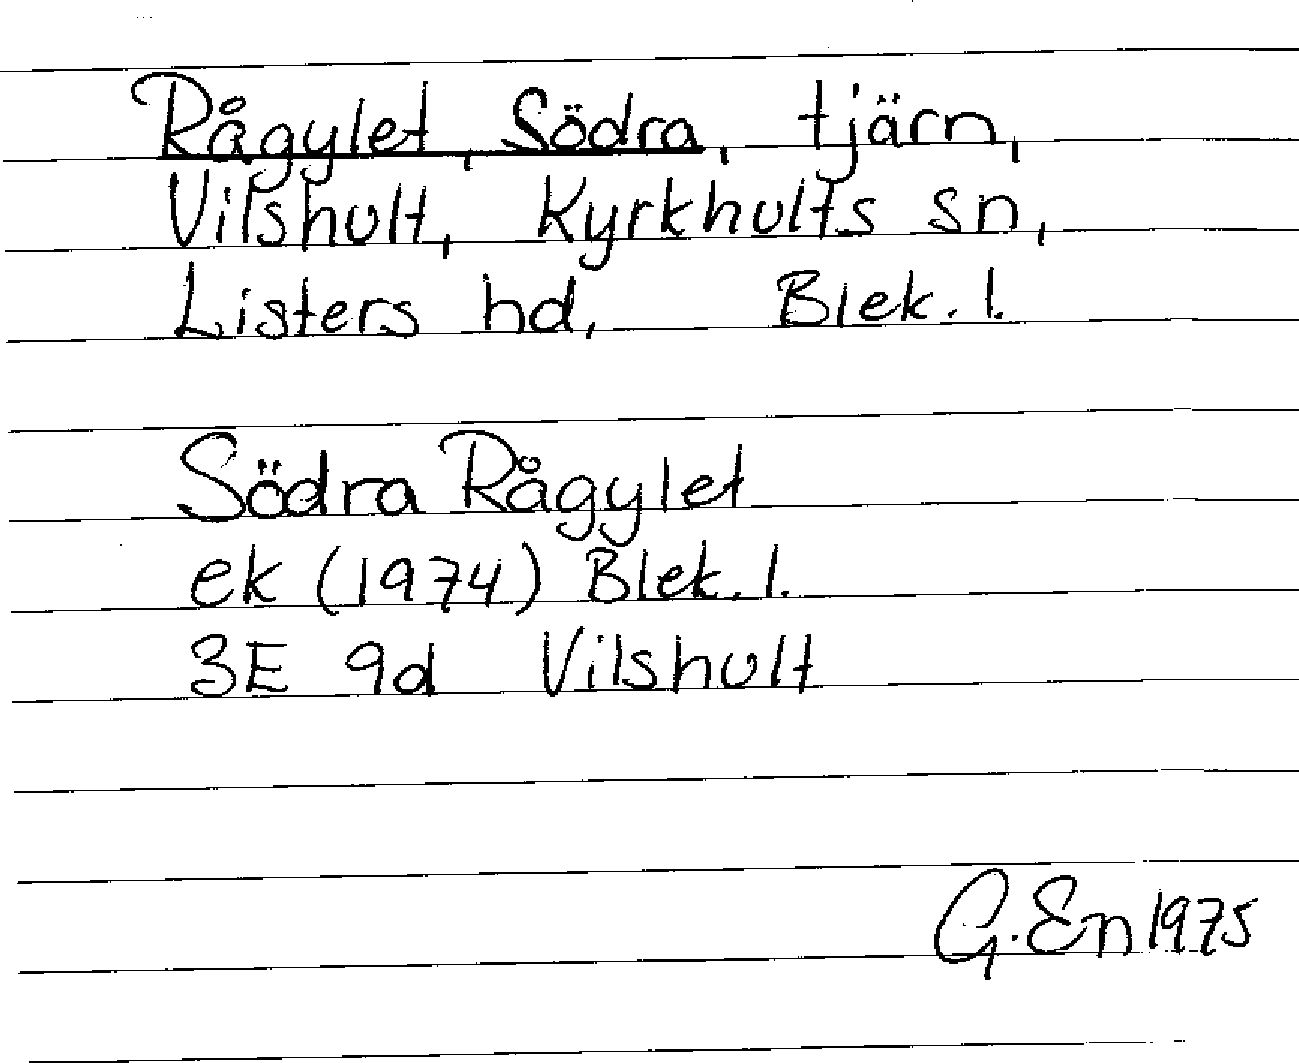 Rågylet, Södra, tjärn,
Vilshult, Kyrkhults sn,
Listers hd, Blek. l.
Södra Rågylet
ek (1974) Blek. l.
3E 9d Vilshult
G. En 1975